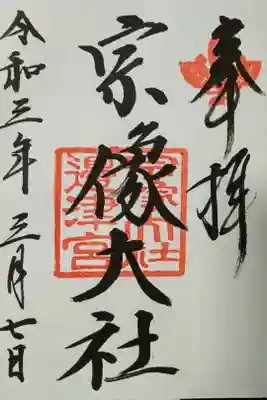 奉拝
宗像大社
宗像大社
邊津宮
令和三年三月七日